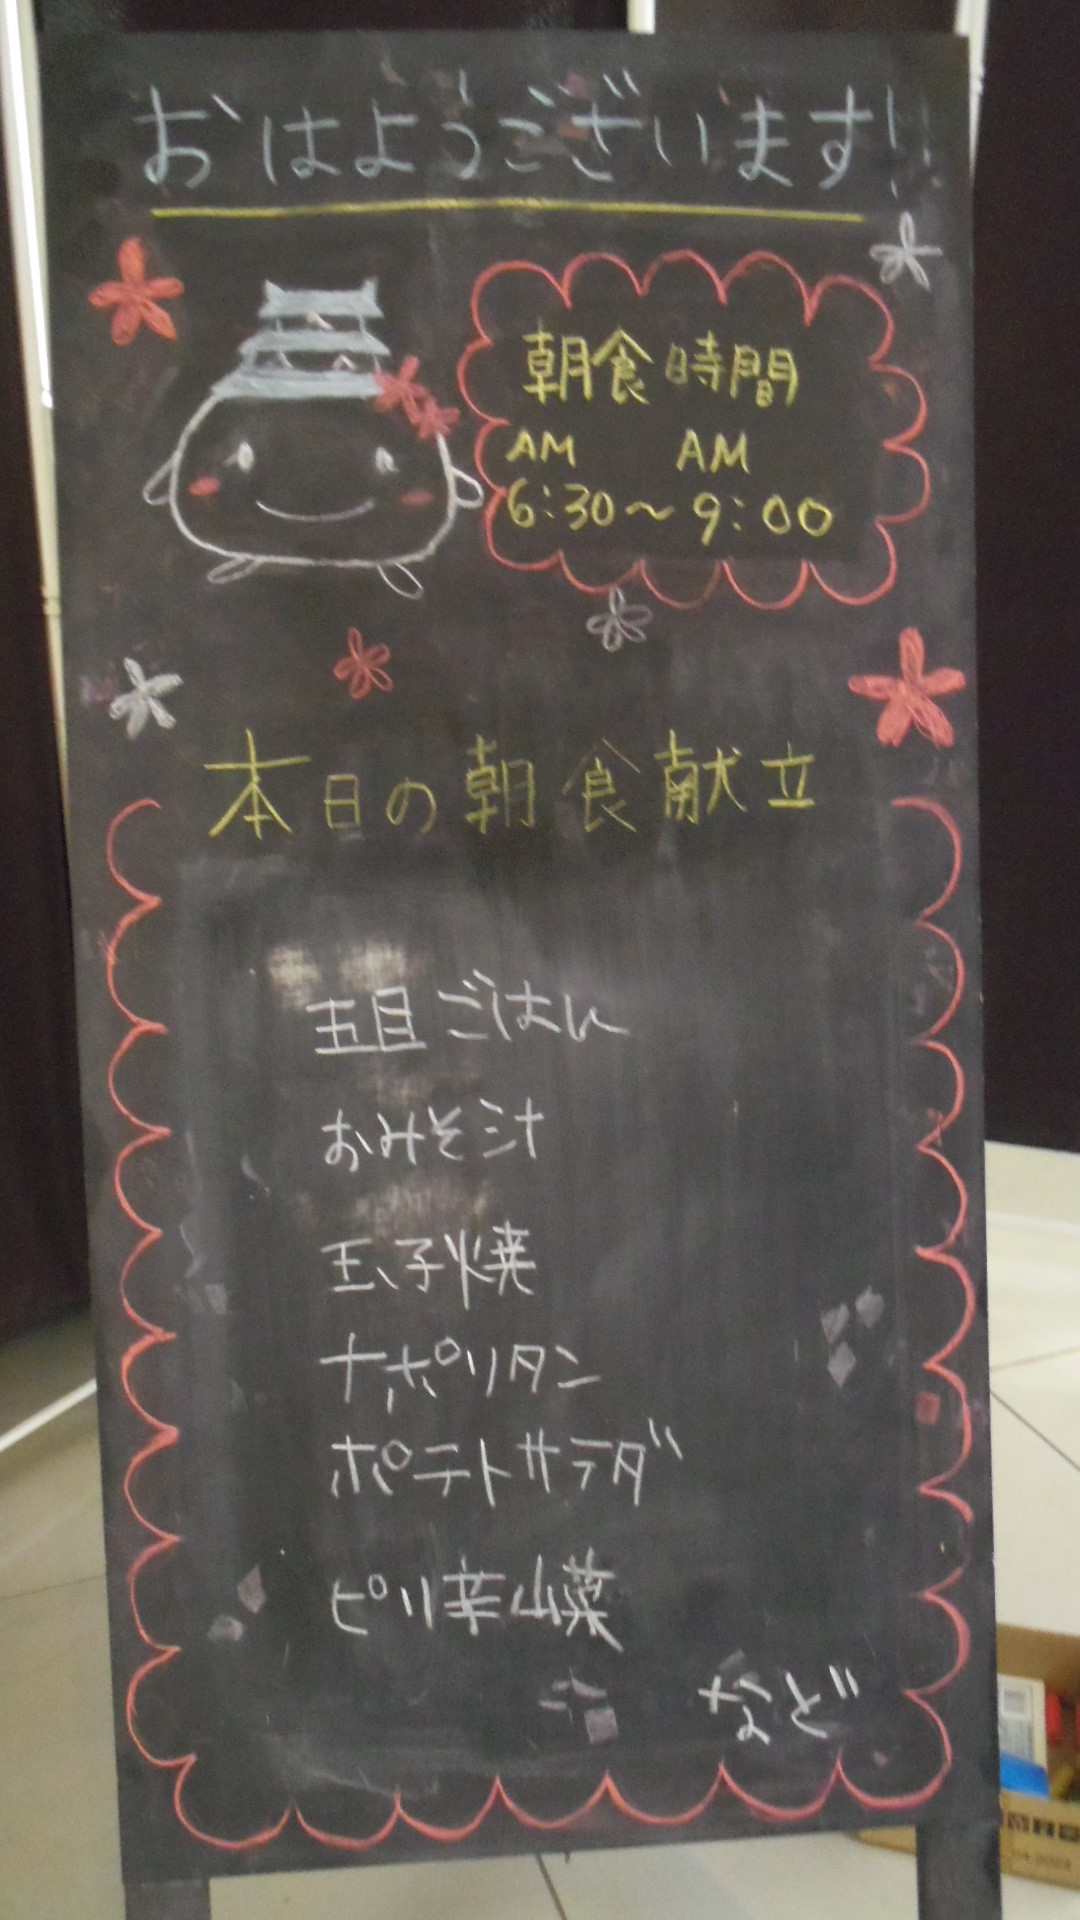 おはようございます!!
朝食時間
AM AM
6:30~9:00
本日の朝食献立
五目ごはん
おみそ汁
玉子焼
ナポリタン
ポテトサラダ
ピリ辛山菜
など